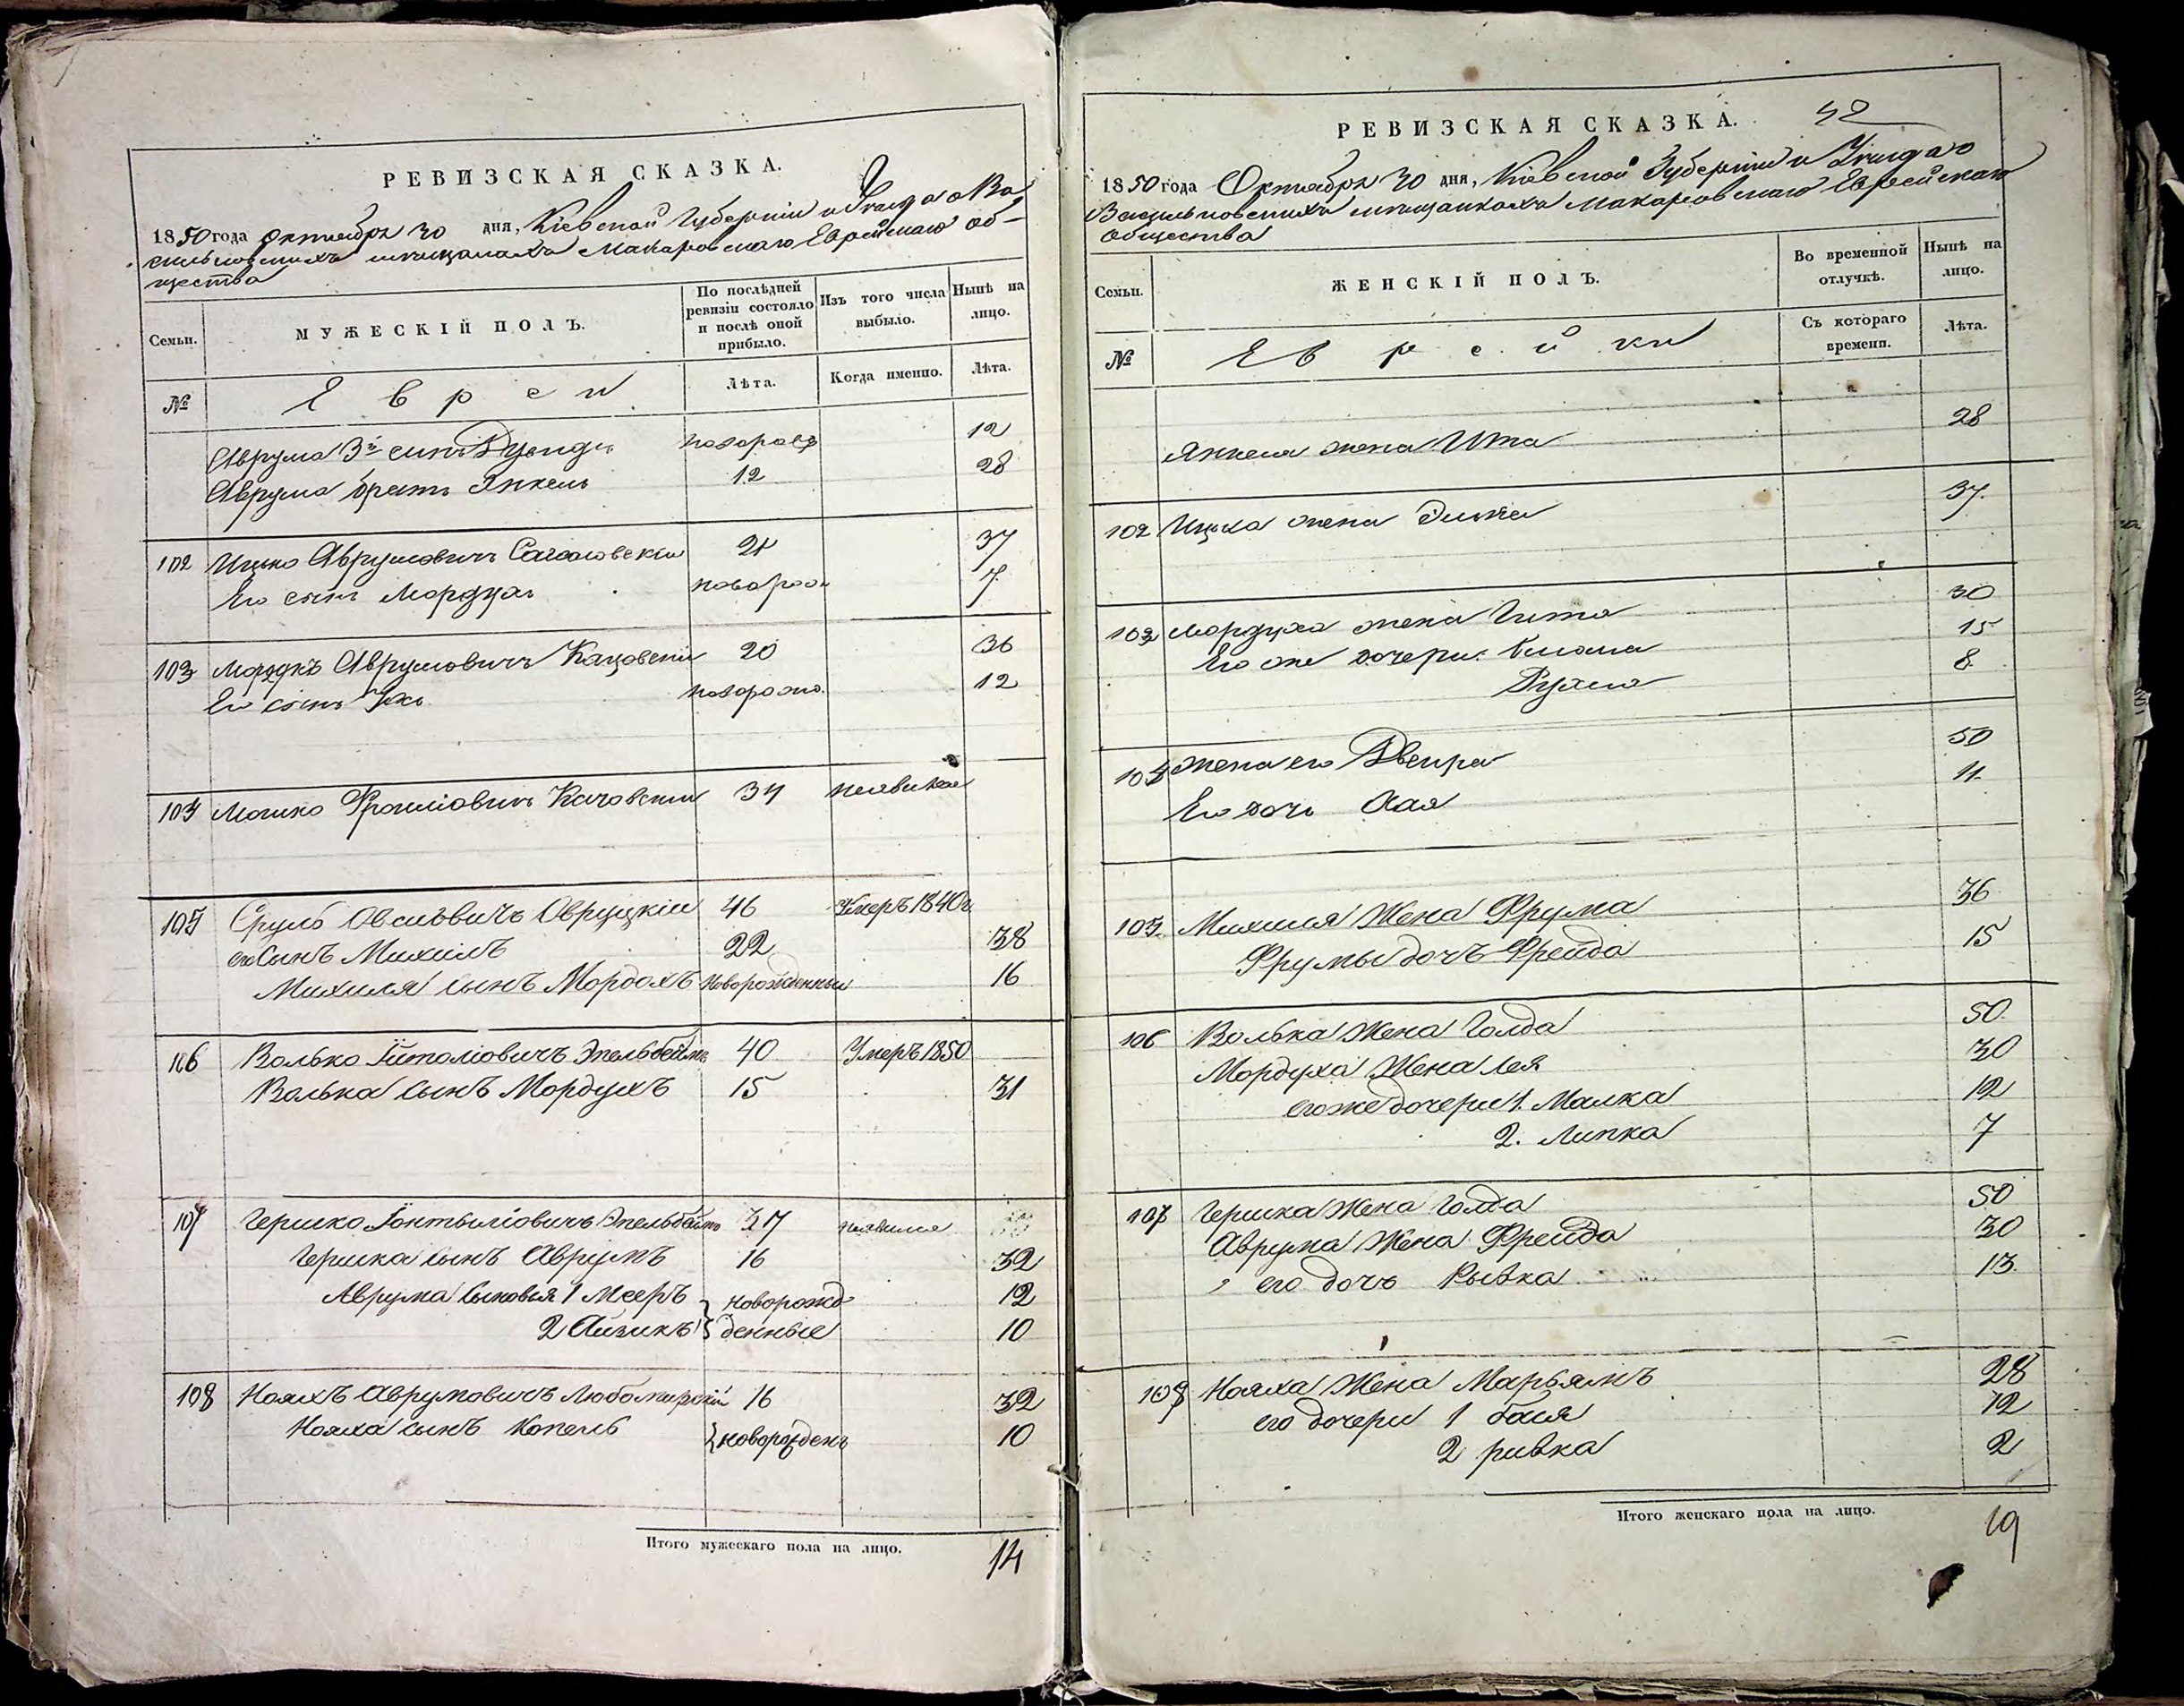 РЕВИЗСКАЯ СКАЗКА.
1850 года Октября 30 дня, Кіевской Губерніи и Уезда о Ва
сильковскихъ мещанахъ Макаровскаго Еврейскаго об-
щества
Семьи.
МУЖЕСКІЙ ПОЛЪ.
По послѣдней ревизіи состояло и послѣ оной прибыло.
Изъ того числа выбыло.
Нынѣ на лицо.
№
Евреи
Лѣта.
Когда именно.
Лѣта.
Аврума 3й сынъ 12
Аврума братъ Янкель 12 28
102 Ицко Аврумовичъ 21 37
Его сынъ Мордух 7
103 Аврумовичъ 20 36
Его сынъ 12
104 Мошко 34 неявился
105 Сруль Овсіовичъ Овруцкіи 46 Умеръ 1840г
его Сынъ Михиль 22 38
Михиля сынъ Мордохъ новорожденныи 16
106 Волько Эпельбеймъ 40 Умеръ 1850
Волька сынъ Мордухъ 15 31
107 Гершко 37 неявился
Гершка сынъ Аврумъ 16 32
Аврума сыновья 1 Мееръ новорожд 12
2 Айзикъ денные 10
108 Нояхъ Аврумовичъ Любомирскій 16 32
Нояха сынъ Копель новорожденъ 10
Итого мужескаго пола на лицо. 14
42
РЕВИЗСКАЯ СКАЗКА.
1850 года Октября 30 дня, Кіевской Губерніи и Уезда о
Васильковскихъ мещанкахъ Макаровскаго Еврейскаго
общества
Семьи.
ЖЕНСКІЙ ПОЛЪ.
Во временной отлучкѣ.
Нынѣ на лицо.
№
Еврейки
Съ котораго времени.
Лѣта.
Янкеля жена Ита 28
102 Ицька жена 37
103 Мордуха жена Гитля 30
Его же дочери: 15
Рухля 8
104 жена его Двейра 50
Его дочь Хая 11
105 Михиля Жена Фрума 36
Фрумы дочъ Фрейда 15
106 Волька Жена Голда 50
Мордуха Жена Лея 30
его же дочери 1. Малка 12
2. Липка 7
107 Гершка Жена Голда 50
Аврума Жена Фрейда 30
его дочъ Рывка 13
108 Нояха Жена Марьямъ 28
его дочери 1 бася 12
2 ривка 2
Итого женскаго пола на лицо. 19